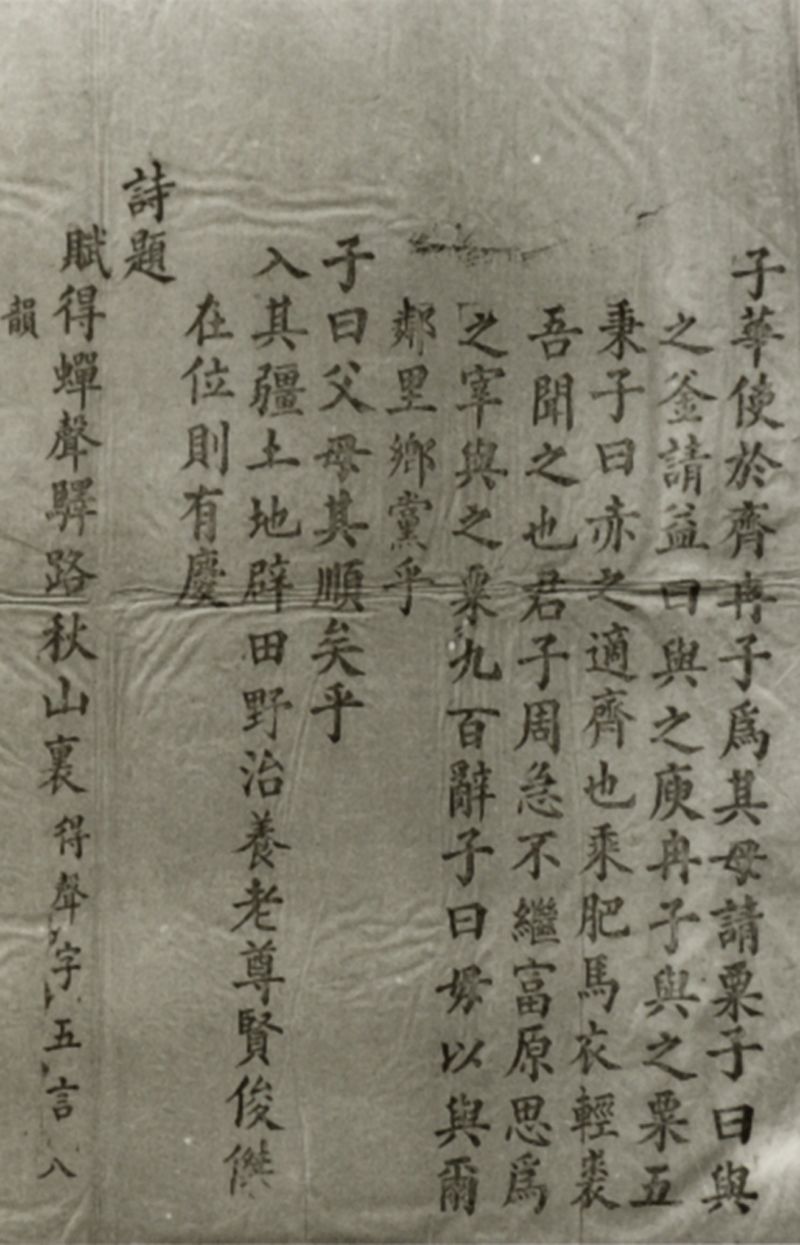 子華使於齊冉子爲其母請粟子曰與
之釜請益曰與之庾冉子與之粟五
秉子曰赤之適齊也乘肥馬衣輕裘
吾聞之也君子周急不繼富原思爲
之宰與之粟九百辭子曰毋以與爾
鄰里鄉黨乎
子曰父母其順矣乎
入其疆土地辟田野治養老尊賢俊傑
在位則有慶
詩題
賦得蟬聲驛路秋山裏得聲字五言八
韻